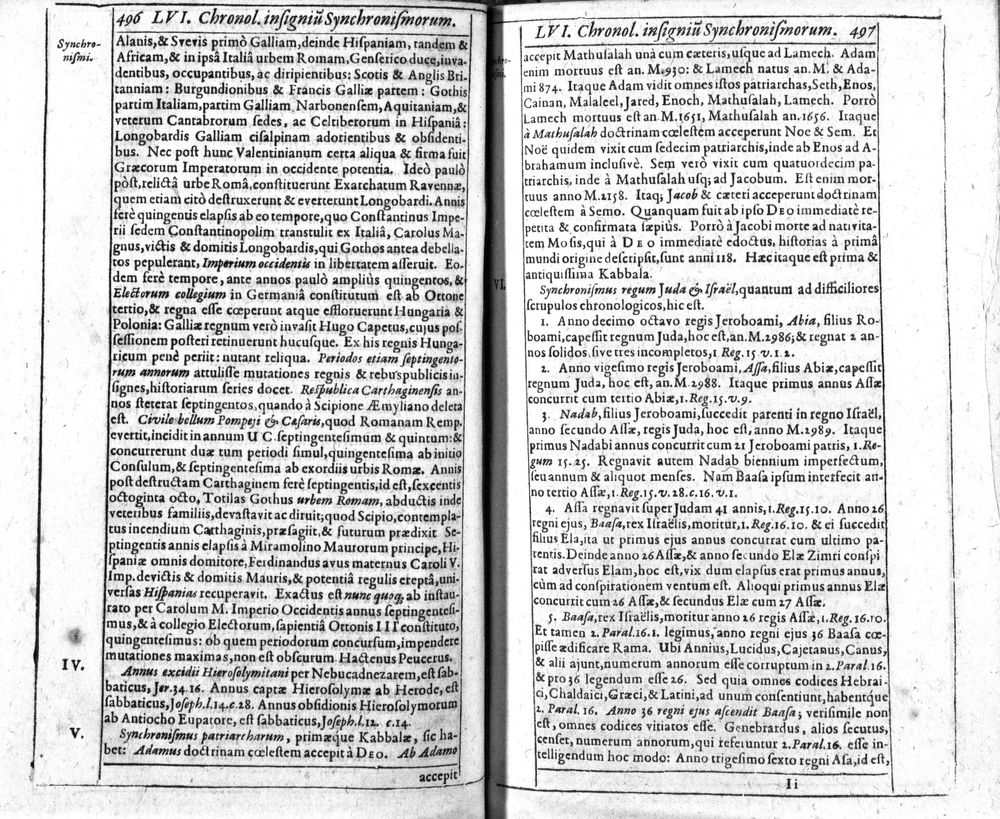 496 LVI. Chronol. insigniũ Synchronismorum.
Synchro-
nismi.
Alanis, & Svevis primò Galliam, deinde Hispaniam, tandem &
Africam, & in ipsâ Italiâ urbem Romam, Genserico duce, inva-
dentibus, occupantibus, ac diripientibus: Scotis & Anglis Bri-
tanniam: Burgundionibus & Francis Galliæ partem: Gothis
partim Italiam, partim Galliam Narbonensem, Aquitaniam, &
veterum Cantabrorum sedes, ac Celtiberorum in Hispaniâ:
Longobardis Galliam cisalpinam adorientibus & obsidenti-
bus. Nec post hunc Valentinianum certa aliqua & firma fuit
Græcorum Imperatorum in occidente potentia. Ideò paulò
pòst, relictâ urbe Româ, constituerunt Exarchatum Ravennæ,
quem etiam citò destruxerunt & everterunt Longobardi. Annis
ferè quingentis elapsis ab eo tempore, quo Constantinus Impe-
rii sedem Constantinopolim transtulit ex Italiâ, Carolus Ma-
gnus, victis & domitis Longobardis, qui Gothos antea debella-
tos pepulerant, Imperium occidentis in libertatem asseruit. Eo-
dem ferè tempore, ante annos paulò ampliùs quingentos, &
Electorum collegium in Germaniâ constitutum est ab Ottone
tertio, & regna esse cœperunt atque effloruerunt Hungaria &
Polonia: Galliæ regnum verò invasit Hugo Capetus, cujus pos-
sessionem posteri retinuerunt hucusque. Ex his regnis Hunga-
ricum penè periit: nutant reliqua. Periodos etiam septingento-
rum annorum attulisse mutationes regnis & rebus publicis in-
signes, historiarum series docet. Respublica Carthaginensis an-
nos steterat septingentos, quando à Scipione Æmyliano deleta
est. Civile bellum Pompeji & Cæsaris, quod Romanam Remp.
evertit, incidit in annum U C. septingentesimum & quintum: &
concurrerunt duæ tum periodi simul, quingentesima ab initio
Consulum, & septingentesima ab exordiis urbis Romæ. Annis
post destructam Carthaginem ferè septingentis, id est, sexcentis
octoginta octo, Totilas Gothus urbem Romam, abductis inde
veteribus familiis, devastavit ac diruit; quod Scipio, contempla-
tus incendium Carthaginis, præsagiit, & futurum prædixit Se-
ptingentis annis elapsis à Miramolino Maurorum principe, Hi-
spaniæ omnis domitore, Ferdinandus avus maternus Caroli V.
Imp. devictis & domitis Mauris, & potentiâ regulis ereptâ, uni-
versas Hispanias recuperavit. Exactus est nunc quoq; ab instau-
rato per Carolum M. Imperio Occidentis annus septingentesi-
mus, & à collegio Electorum, sapientiâ Ottonis III constituto,
quingentesimus: ob quem periodorum concursum, impendere
mutationes maximas, non est obscurum. Hactenus Peucerus.
IV. Annus excidii Hierosolymitani per Nebucadnezarem, est sab-
baticus, Jer. 34. 16. Annus captæ Hierosolymæ ab Herode, est
sabbaticus, Joseph. l. 14. c. 28. Annus obsidionis Hierosolymorum
ab Antiocho Eupatore, est sabbaticus, Joseph. l. 12. c. 14.
V. Synchronismus patriarcharum, primæque Kabbalæ, sic ha-
bet: Adamus doctrinam cœlestem accepit à DEO. Ab Adamo
accepit
LVI. Chronol. insigniũ Synchronismorum. 497
accepit Mathusalah unà cum cæteris, usque ad Lamech. Adam
enim mortuus est an. M. 930: & Lamech natus an. M. & Ada-
mi 874. Itaque Adam vidit omnes istos patriarchas, Seth, Enos,
Cainan, Malaleel, Jared, Enoch, Mathusalah, Lamech. Porrò
Lamech mortuus est an. M. 1651, Mathusalah an. 1656. Itaque
à Mathusalah doctrinam cœlestem acceperunt Noe & Sem. Et
Noë quidem vixit cum sedecim patriarchis, inde ab Enos ad A-
brahamum inclusivè. Sem verò vixit cum quatuordecim pa-
triarchis, inde à Mathusalah usq; ad Jacobum. Est enim mor-
tuus anno M. 2158. Itaq; Jacob & cæteri acceperunt doctrinam
cœlestem à Semo. Quanquam fuit ab ipso DEO immediatè re-
petita & confirmata sæpiùs. Porrò à Jacobi morte ad nativita-
tem Mosis, qui à DEO immediatè edoctus, historias à primâ
mundi origine descripsit, sunt anni 118. Hæc itaque est prima &
antiquissima Kabbala.
VI. Synchronismus regum Juda & Israël, quantum ad difficiliores
scrupulos chronologicos, hic est.
1. Anno decimo octavo regis Jeroboami, Abia, filius Ro-
boami, capessit regnum Juda, hoc est, an. M. 2986; & regnat 2 an-
nos solidos, sive tres incompletos, 1 Reg. 15. v. 1. 2.
2. Anno vigesimo regis Jeroboami, Assa, filius Abiæ, capessit
regnum Juda, hoc est, an. M. 2988. Itaque primus annus Assæ
concurrit cum tertio Abiæ, 1. Reg. 15. v. 9.
3. Nadab, filius Jeroboami, succedit parenti in regno Israël,
anno secundo Assæ, regis Juda, hoc est, anno M. 2989. Itaque
primus Nadabi annus concurrit cum 21 Jeroboami patris, 1. Re-
gum 15. 25. Regnavit autem Nadab biennium imperfectum,
seu annum & aliquot menses. Nam Baasa ipsum interfecit an-
no tertio Assæ, 1. Reg. 15. v. 28. c. 16. v. 1.
4. Assa regnavit super Judam 41 annis, 1. Reg. 15. 10. Anno 26
regni ejus, Baasa, rex Israëlis, moritur, 1. Reg. 16. 10. & ei succedit
filius Ela, ita ut primus ejus annus concurrat cum ultimo pa-
rentis. Deinde anno 26 Assæ, & anno secundo Elæ Zimri conspi
rat adversus Elam, hoc est, vix dum elapsus erat primus annus,
cùm ad conspirationem ventum est. Alioqui primus annus Elæ
concurrit cum 26 Assæ, & secundus Elæ cum 27 Assæ.
5. Baasa, rex Israëlis, moritur anno 26 regis Assæ, 1. Reg. 16. 10.
Et tamen 2. Paral. 16. 1. legimus, anno regni ejus 36 Baasa cœ-
pisse ædificare Rama. Ubi Annius, Lucidus, Cajetanus, Canus,
& alii ajunt, numerum annorum esse corruptum in 2. Paral. 16.
& pro 36 legendum esse 26. Sed quia omnes codices Hebrai-
ci, Chaldaici, Græci, & Latini, ad unum consentiunt, habentque
2. Paral. 16. Anno 36 regni ejus ascendit Baasa; verisimile non
est, omnes codices vitiatos esse. Genebrardus, alios secutus,
censet, numerum annorum, qui referuntur 2. Paral. 16. esse in-
telligendum hoc modo: Anno trigesimo sexto regni Asa, id est,
Ii